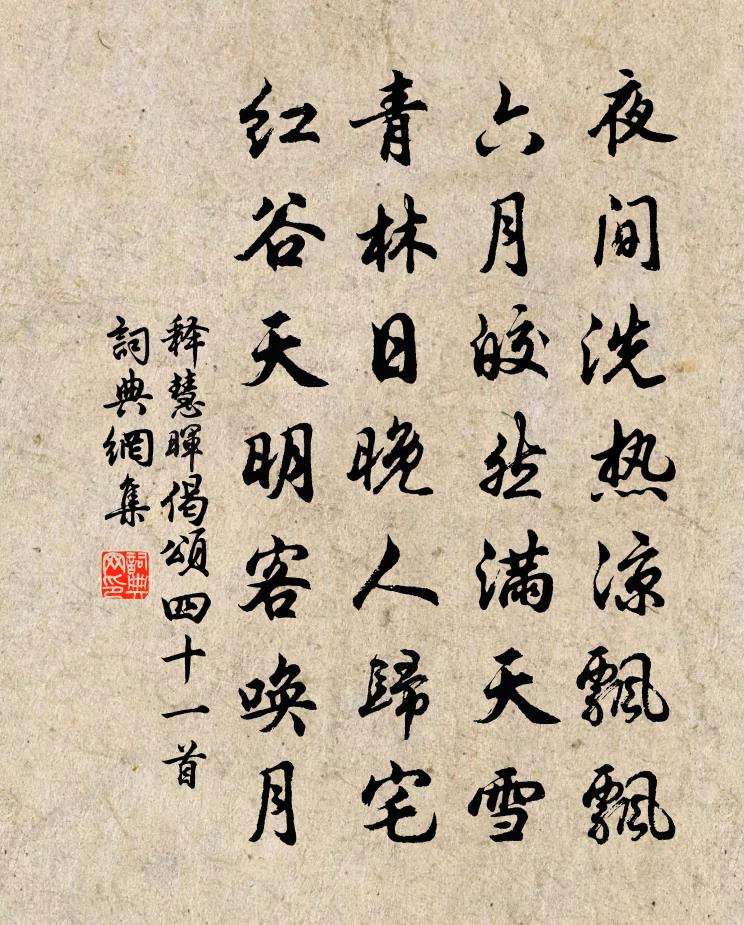 夜间洗热凉飘飘
六月皎然满天雪
青林日晚人歸宅
红谷天明客唤月
释慧暉偈頌四十一首
詞典網集
詞典网印